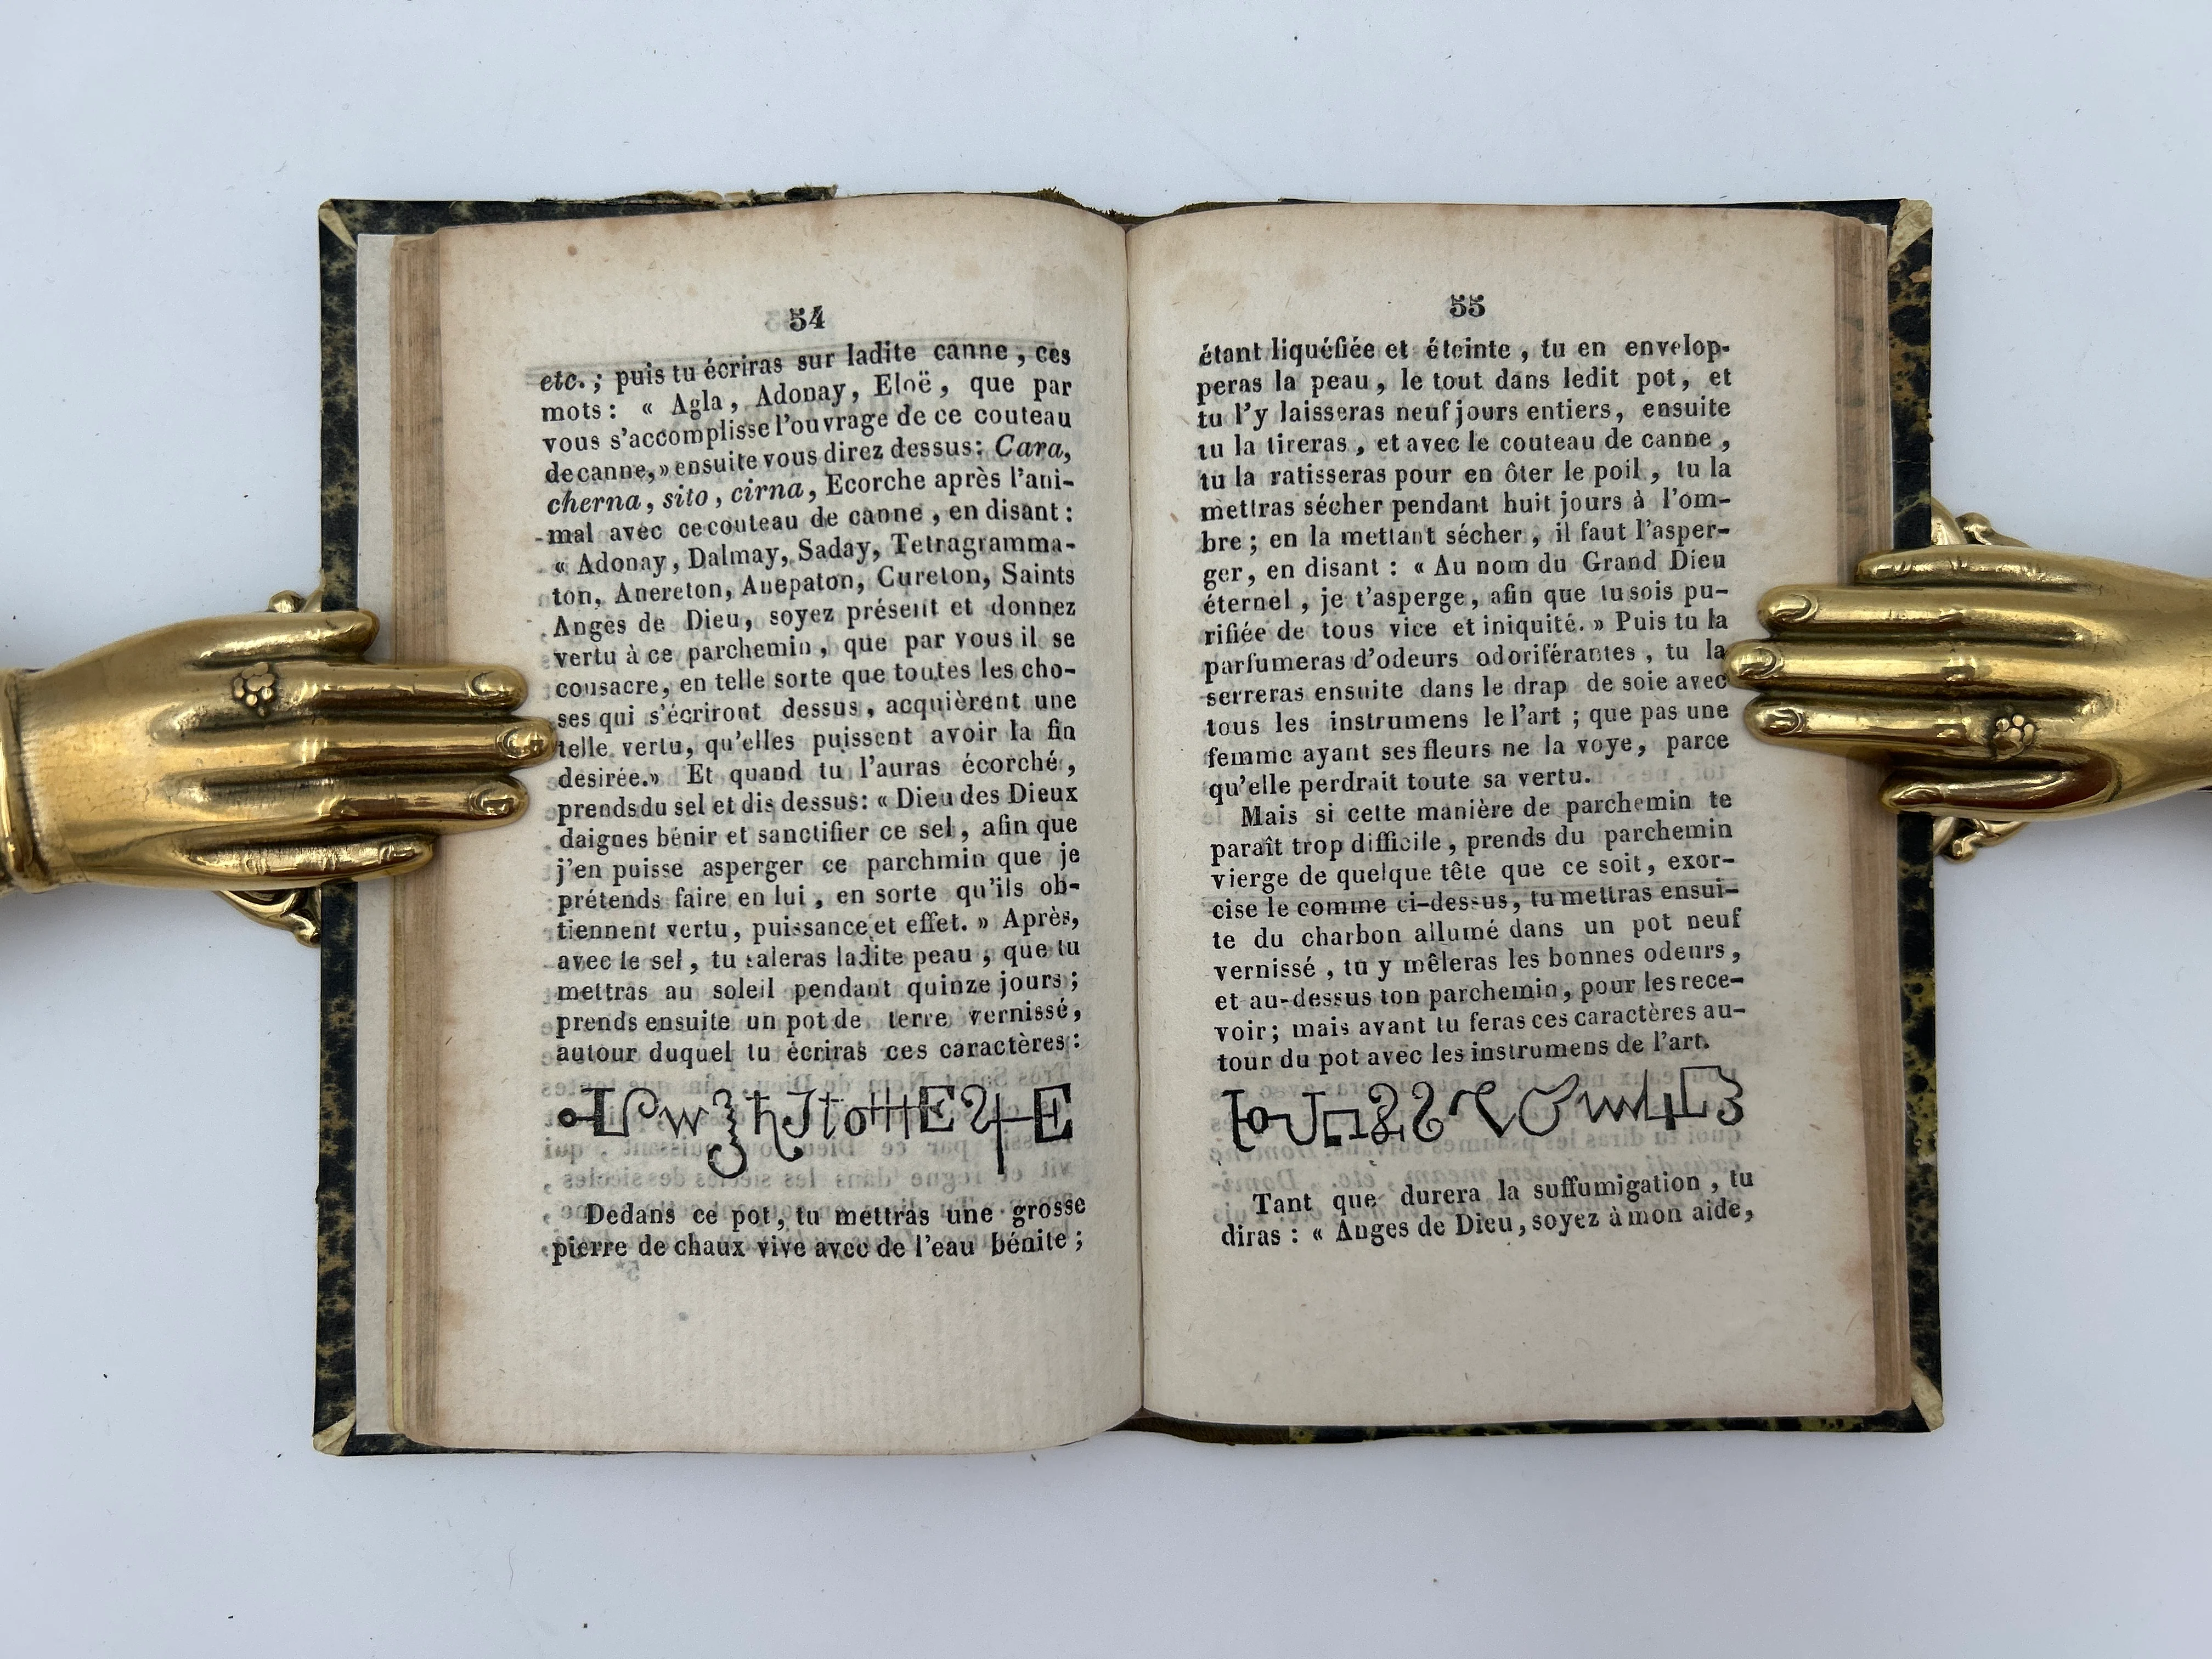 54
etc. ; puis tu écriras sur ladite canne , ces
mots : « Agla , Adonay , Eloë , que par
vous s'accomplisse l'ouvrage de ce couteau
de canne, » ensuite vous direz dessus : Cara,
cherna , sito , cirna , Ecorche après l'ani-
mal avec ce couteau de canne , en disant :
« Adonay , Dalmay, Saday, Tetragramma-
ton, Anereton, Anepaton, Cureton, Saints
Anges de Dieu, soyez présent et donnez
vertu à ce parchemin , que par vous il se
consacre, en telle sorte que toutes les cho-
ses qui s'écriront dessus , acquièrent une
telle vertu, qu'elles puissent avoir la fin
desirée.» Et quand tu l'auras écorché ,
prends du sel et dis dessus : « Dieu des Dieux
daignes bénir et sanctifier ce sel , afin que
j'en puisse asperger ce parchmin que je
prétends faire en lui , en sorte qu'ils ob-
tiennent vertu , puissance et effet. » Après,
avec le sel , tu saleras ladite peau , que tu
mettras au soleil pendant quinze jours ;
prends ensuite un pot de terre vernissé,
autour duquel tu écriras ces caractères :
Dedans ce pot, tu mettras une grosse
pierre de chaux vive avec de l'eau bénite ;
55
étant liquéfiée et éteinte , tu en envelop-
peras la peau , le tout dans ledit pot, et
tu l'y laisseras neuf jours entiers, ensuite
tu la tireras , et avec le couteau de canne ,
tu la ratisseras pour en ôter le poil , tu la
mettras sécher pendant huit jours à l'om-
bre ; en la mettant sécher , il faut l'asper-
ger, en disant : « Au nom du Grand Dieu
éternel , je t'asperge, afin que tu sois pu-
rifiée de tous vice et iniquité. » Puis tu la
parfumeras d'odeurs odoriférantes , tu la
serreras ensuite dans le drap de soie avec
tous les instrumens le l'art ; que pas une
femme ayant ses fleurs ne la voye, parce
qu'elle perdrait toute sa vertu.
Mais si cette manière de parchemin te
paraît trop difficile , prends du parchemin
vierge de quelque tête que ce soit , exor-
cise le comme ci-dessus, tu mettras ensui-
te du charbon allumé dans un pot neuf
vernissé , tu y mêleras les bonnes odeurs ,
et au-dessus ton parchemin, pour les rece-
voir; mais avant tu feras ces caractères au-
tour du pot avec les instrumens de l'art.
Tant que durera la suffumigation , tu
diras : « Anges de Dieu, soyez à mon aide,